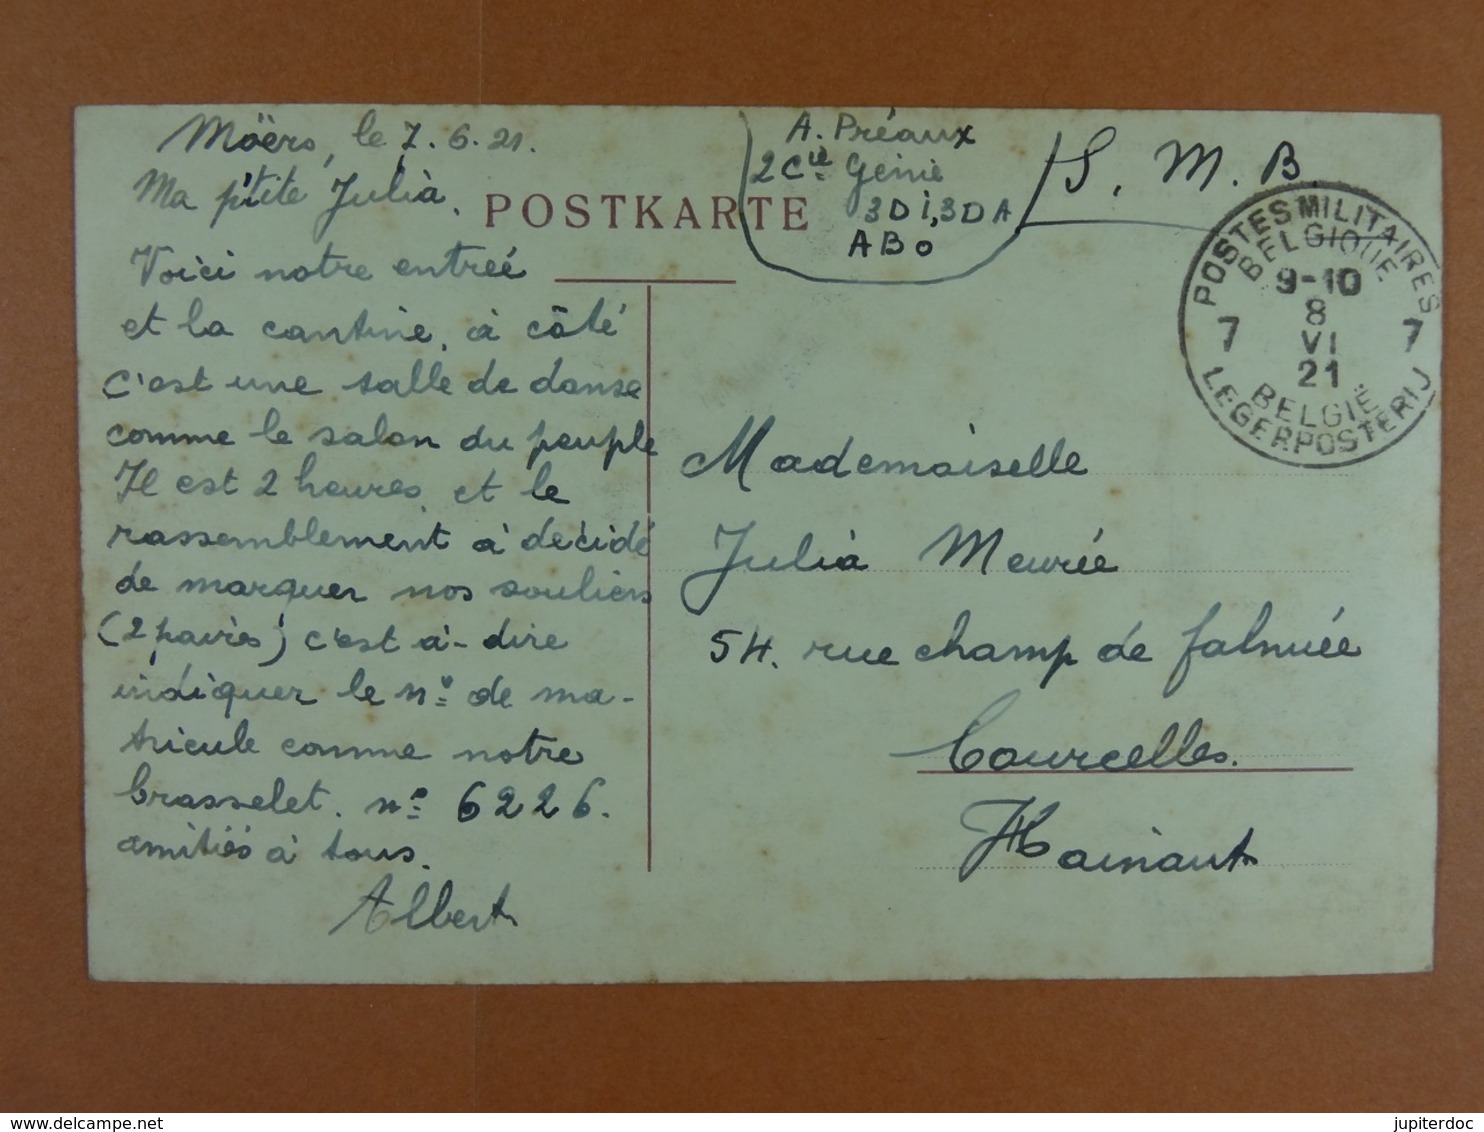 Möers, le 7.6.21.
Ma p'tite Julia.
Voici notre entreé
et la cantine, à côté
c'est une salle de danse
comme le salon du peuple
Il est 2 heures, et le
rassemblement à décidé
de marquer nos souliers
(2 paires) c'est à-dire
indiquer le nº de ma-
tricule comme notre
brasselet. nº 6226.
amitiés à tous.
Albert
POSTKARTE
A. Préaux
2 Cie Génie
3 D I, 3 D A
A B O
S. M. B
POSTES MILITAIRES
BELGIQUE
9-10
8
VI
21
7 7
BELGIË
LEGERPOSTERIJ
Mademoiselle
Julia Meurée
54. rue champ de falnuée
Courcelles.
Hainaut
jupiterdoc